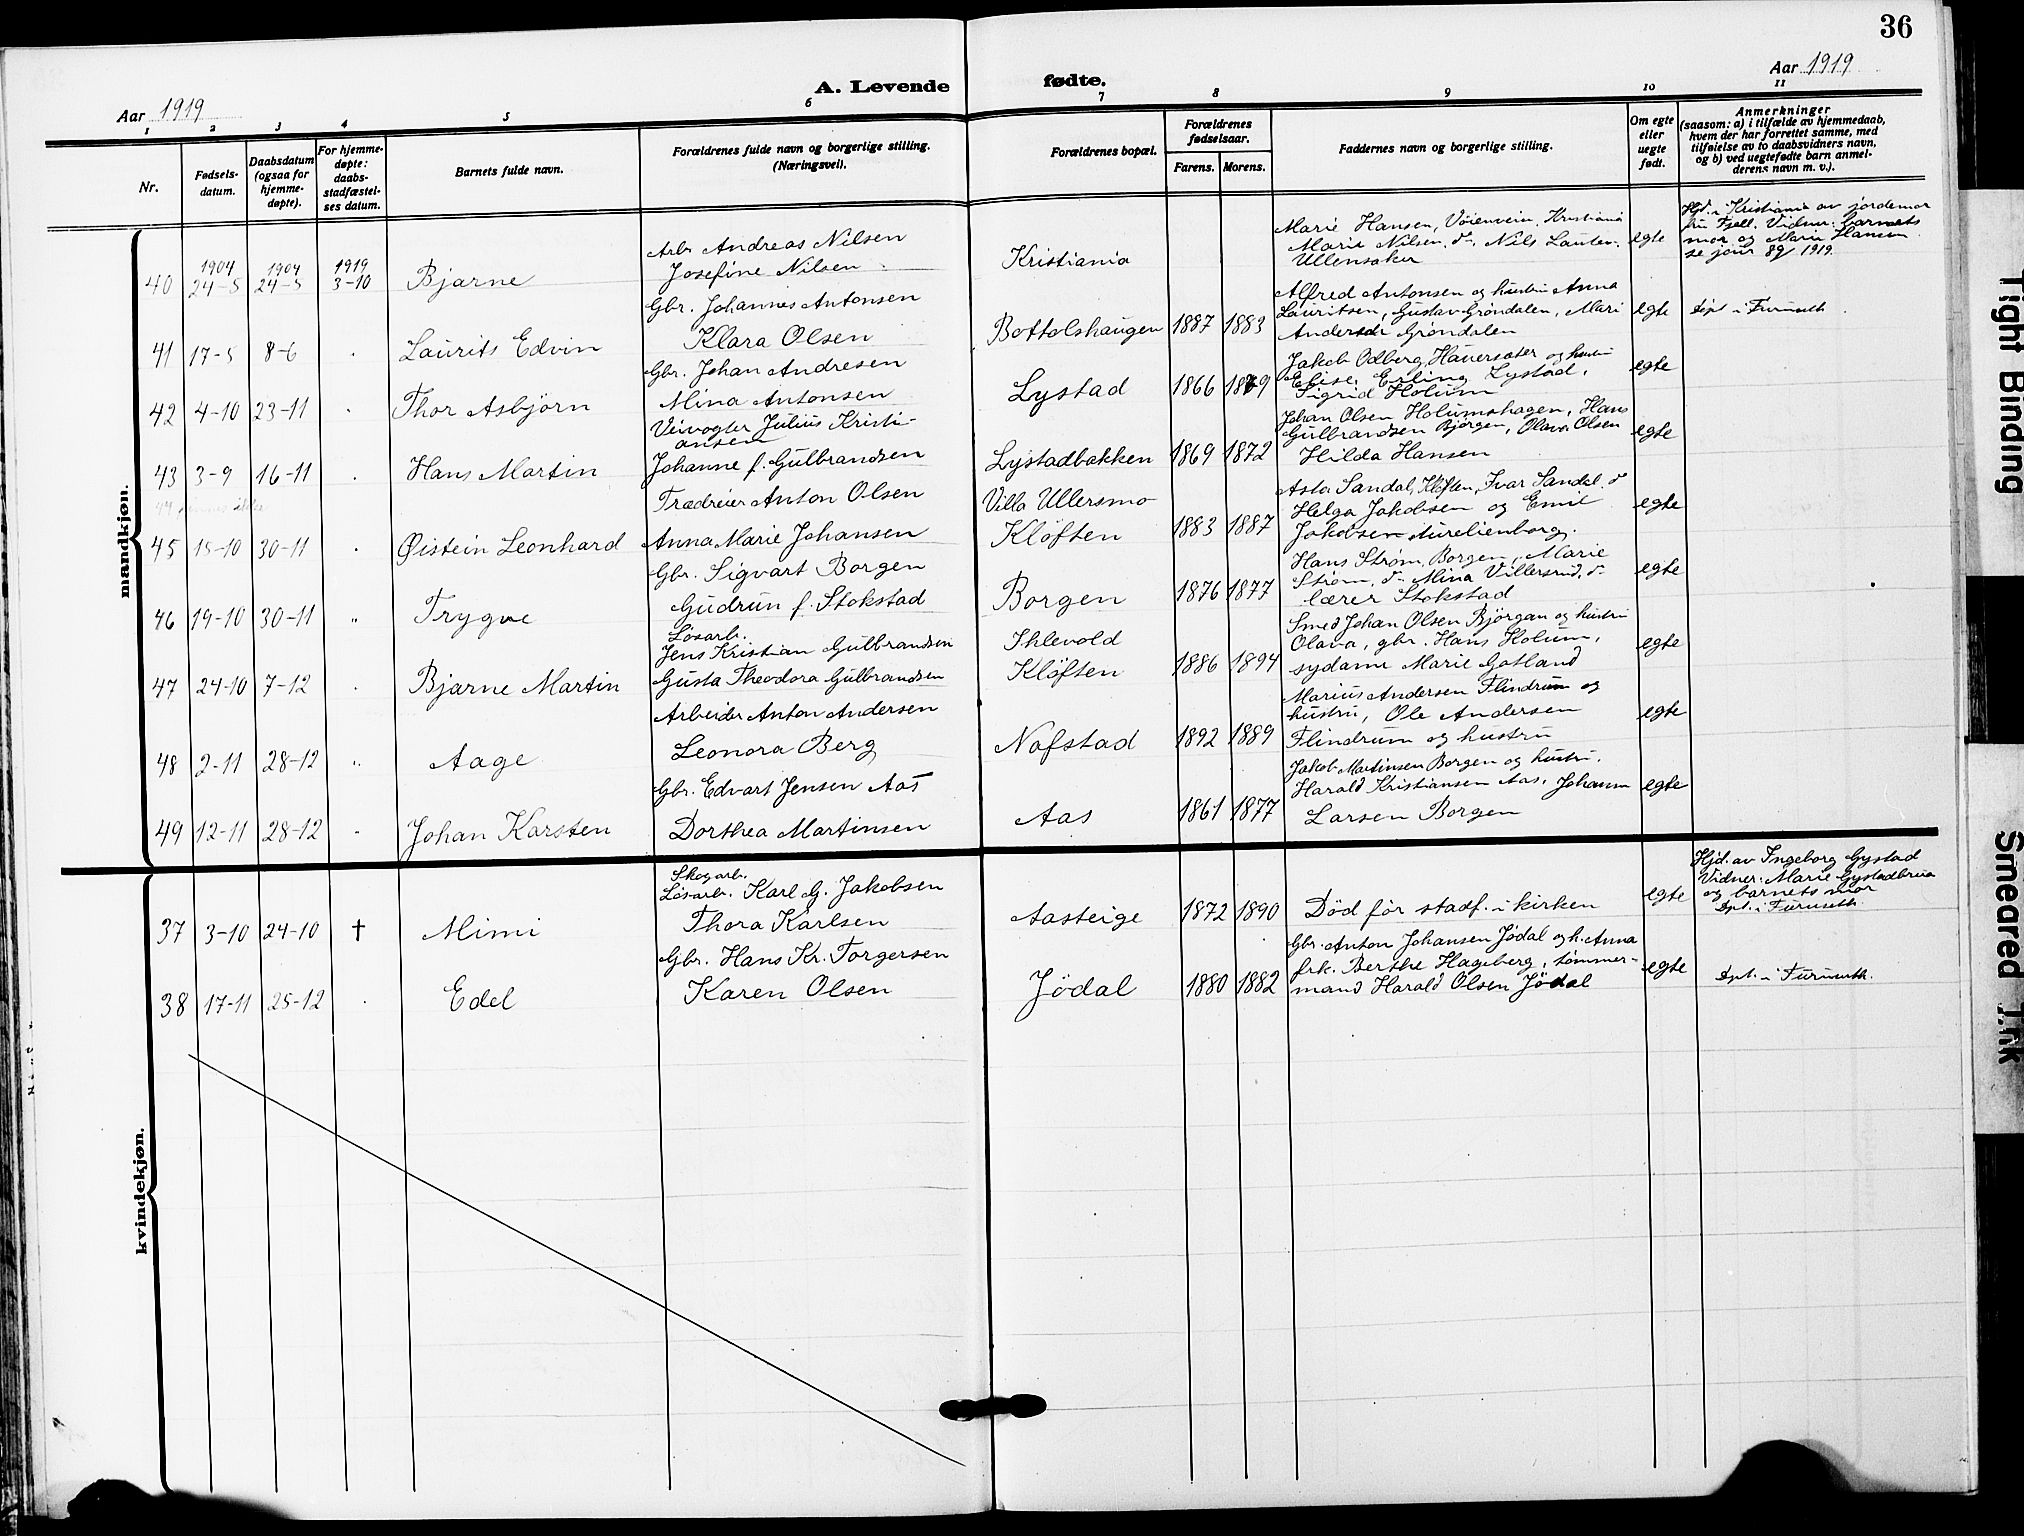 36
Aar 1919
A. Levende fødte.
Aar 1919
1 2 3 4 5 6 7 8 9 10 11
Nr.
Fødsels-
datum.
Daabsdatum
(ogsaa for
hjemme-
døpte).
For hjemme-
døpte:
daabs-
stadfæstel-
ses datum.
Barnets fulde navn.
Forældrenes fulde navn og borgerlige stilling.
(Næringsvei).
Forældrenes bopæl.
Forældrenes
fødselsaar.
Farens. Morens.
Faddernes navn og borgerlige stilling.
Om egte
eller
uegte
født.
Anmerkninger
(saasom: a) i tilfælde av hjemmedaab,
hvem der har forrettet samme, med
tilføielse av to daabsvidners navn,
og b) ved uegtefødte barn anmel-
derens navn m. v.).
mandkjøn.
40
1904
24-5
1904
24-5
1919
3-10
Bjarne
Arb. Andreas Nilsen
Josefine Nilsen
Kristiania
Marie Hansen, Vøienveien, Kristiania
Marie Nilsen, d-, Nils Lauten.
Ullensaker
egte
Hjd. i Kristiania av jordemor
fru Fjell. Vidner: barnets
mor og Marie Hansen
se jour 89/1919.
41 17-5 8-6 Laurits Edvin
Gbr. Johannes Antonsen
Klara Olsen
Bottolshaugen 1887 1883
Alfred Antonsen og hustru Anna
Lauritsen, Gustav Grøndalen, Mari
Andersen Grøndalen
egte
Døpt i Furuseth
42 4-10 23-11 Thor Asbjørn
Gbr. Johan Andresen
Mina Antonsen
Lystad 1866 1879
Jakob Odberg, Hauersæter og hustru
Elise, Erling Lystad,
Sigrid Holum
egte
43 3-9 16-11 Hans Martin
Veivogter Julius Kristi-
ansen
Johanne f. Gulbrandsen
Lystadbakken 1869 1872
Johan Olsen Holumshagen, Hans
Gulbrandsen Bjørgen, Olava Olsen
Hilda Hansen
egte
44
45 15-10 30-11 Øistein Leonhard
Trædreier Anton Olsen
Anna Marie Johansen
Villa Ullersmo
Kløften 1883 1887
Asta Sandal, Kløften, Ivar Sandal, d-
Helga Jakobsen og Emil
Jakobsen Aurelienborg.
egte
46 19-10 30-11 " Trygve
Gbr. Sigvart Borgen
Gudrun f. Stokstad
Borgen 1876 1877
Hans Strøm, Borgen, Marie
Strøm, d- Mina Villersrud, d-
lærer Stokstad
egte
47 24-10 7-12 Bjarne Martin
Løsarb.
Jens Kristian Gulbrandsen
Gusta Theodora Gulbrandsen
Ihlevold
Kløften 1886 1894
Smed Johan Olsen Bjørgan og hustru
Olava, gbr. Hans Holum,
sydame Marie Gotland
egte
48 2-11 28-12 " Aage
Arbeider Anton Andersen
Leonora Berg
Nofstad 1892 1889
Marius Andersen Flindrum og
hustru, Ole Andersen
Flindrum og hustru
egte
49 12-11 28-12 Johan Karsten
Gbr. Edvart Jensen Aas
Dorthea Martinsen
Aas 1861 1877
Jakob Martinsen Borgen og hustru.
Harald Kristiansen Aas, Johann
Larsen Borgen
egte
kvindekjøn.
37 3-10 24-10 † Mimi
Skogarb.
Løsarb. Karl G. Jakobsen
Thora Karlsen
Aasteige 1872 1890 Død før stadf. i kirken
egte
Hjd. av Ingeborg Gystad
Vidner: Marie Gystadbrua
og barnets mor
Dpt. i Furuseth.
38 17-11 25-12 Edel
Gbr. Hans Kr. Torgersen
Karen Olsen
Jødal 1880 1882
Gbr. Anton Johansen Jødal og h. Anna
frk. Berthe Hageberg, tømmer-
mand Harald Olsen Jødal
egte
Dpt. i Furuseth.
Tight Binding
Smeared Ink